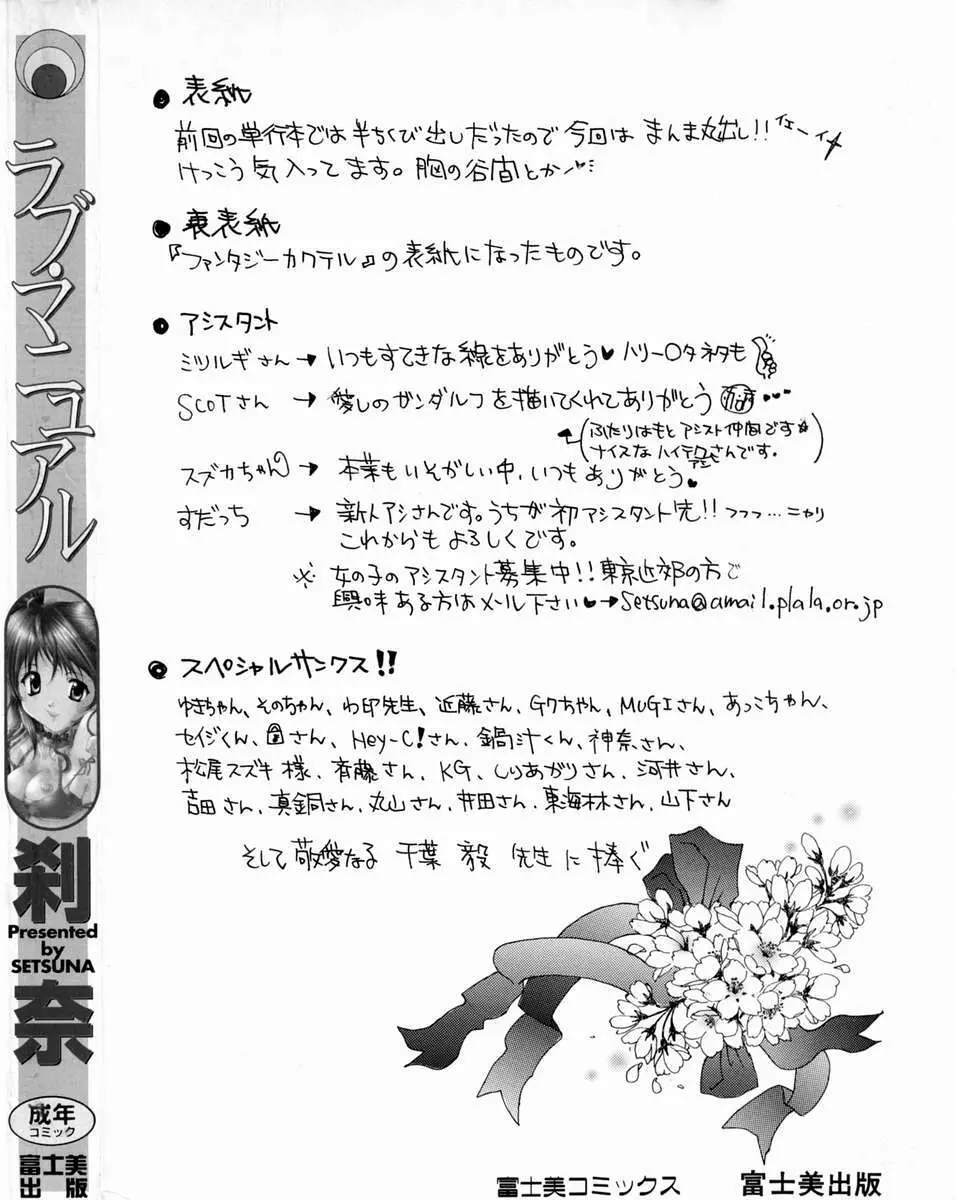 ラブ・マニュアル
刹奈
Presented
by
SETSUNA
成年
コミック
富士美
出版
● 表紙
前回の単行本では半ちくび出しだったので今回は まんま丸出し!! イェーイ
けっこう気入ってます。胸の谷間とか
● 裏表紙
『ファンタジーカクテル』の表紙になったものです。
● アシスタント
ミツルギさん → いつもすてきな線をありがとう♥ ハリー〇タネタも
SCOTさん → 愛しのガンダルフを描いてくれてありがとう
(ふたりはもとアシスト仲間です☆
ナイスなハイテクアシさんです。)
スズカちゃん → 本業もいそがしい中、いつもありがとう♥
すだっち → 新人アシさんです。うちが初アシスタント先!! フフフ…ニヤリ
これからもよろしくです。
※ 女の子のアシスタント募集中!! 東京近郊の方で
興味ある方はメール下さい♥→Setsuna@amail.plala.or.jp
● スペシャルサンクス!!
ゆきちゃん、そのちゃん、わ印先生、近藤さん、Gクちゃん、MUGIさん、あっこちゃん、
セイジくん、さん、Hey-C!さん、鍋汁くん、神奈さん、
松尾スズキ様、斉藤さん、KG、しりあがりさん、河井さん、
吉田さん、真鍋さん、丸山さん、井田さん、東海林さん、山下さん
そして敬愛なる 千葉 毅 先生に捧ぐ
富士美コミックス 富士美出版